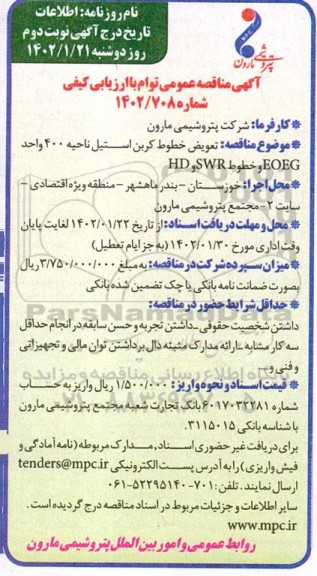 نام روزنامه: اطلاعات
تاریخ درج آگهی نوبت دوم
روز دوشنبه ۱۴۰۲/۱/۲۱
MPC
پتروشیمی مارون
آگهی مناقصه عمومی توام با ارزیابی کیفی
شماره ۱۴۰۲/۷۰۸
* کارفرما: شرکت پتروشیمی مارون
* موضوع مناقصه: تعویض خطوط کربن استیل ناحیه ۴۰۰ واحد
EOEG و خطوط SWR و HD
* محل اجرا: خوزستان - بندر ماهشهر - منطقه ویژه اقتصادی -
سایت ۲ - مجتمع پتروشیمی مارون
* محل و مهلت دریافت اسناد: از تاریخ ۱۴۰۲/۰۱/۲۲ لغایت پایان
وقت اداری مورخ ۱۴۰۲/۰۱/۳۰ (به جز ایام تعطیل)
* میزان سپرده شرکت در مناقصه: به مبلغ ۳/۷۵۰/۰۰۰/۰۰۰ ریال
بصورت ضمانت نامه بانکی یا چک تضمین شده بانکی
* حداقل شرایط حضور در مناقصه:
داشتن شخصیت حقوقی - داشتن تجربه و حسن سابقه در انجام حداقل
سه کار مشابه - ارائه مدارک مثبته دال بر داشتن توان مالی و تجهیزاتی
و فنی و...
* قیمت اسناد و نحوه واریز: ۱/۵۰۰/۰۰۰ ریال واریز به حساب
شماره ۶۰۱۷۰۳۲۲۸۱ بانک تجارت شعبه مجتمع پتروشیمی مارون
با شناسه بانکی ۳۱۱۵۰۱۵.
برای دریافت غیر حضوری اسناد، مدارک مربوطه (نامه آمادگی و
فیش واریزی) را به آدرس پست الکترونیکی tenders@mpc.ir
ارسال نمایند. تلفن: ۷۰۱-۵۲۲۹۵۱۴۰-۰۶۱
سایر اطلاعات و جزئیات مربوط در اسناد مناقصه درج گردیده است.
www.mpc.ir
روابط عمومی و امور بین الملل پتروشیمی مارون